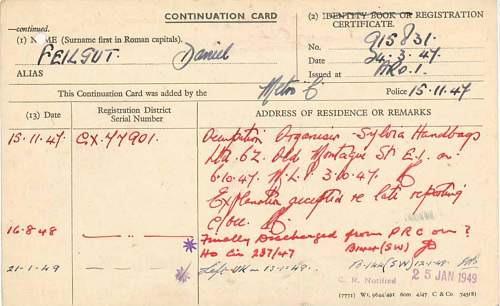 CONTINUATION CARD
—continued.
(1) NAME (Surname first in Roman capitals).
FEILGUT. Daniel
ALIAS
(2) IDENTITY BOOK OR REGISTRATION CERTIFICATE.
No. 915831.
Date 24.3.47.
Issued at ARO.1.
This Continuation Card was added by the Metro C. Police 15.11.47
(13) Date
Registration District Serial Number
ADDRESS OF RESIDENCE OR REMARKS
15.11.47. CX.77901. Occupation Organiser Sylvia Handbags
Ltd 62 Old Montague St E.1. on
6.10.47. M.L.P 3.10.47.
Explanation accepted re late reporting
C/occ.
16.8.48 Finally Discharged from PRC on ?
Ho Cir 237/47 (SW)
21.1.49 Left UK 13.1.49. (SW) 12.1.49.
C. R. Notified 25 JAN 1949
(7771) Wt. 9644/491 20m 4/47 C & Co. 745(8)